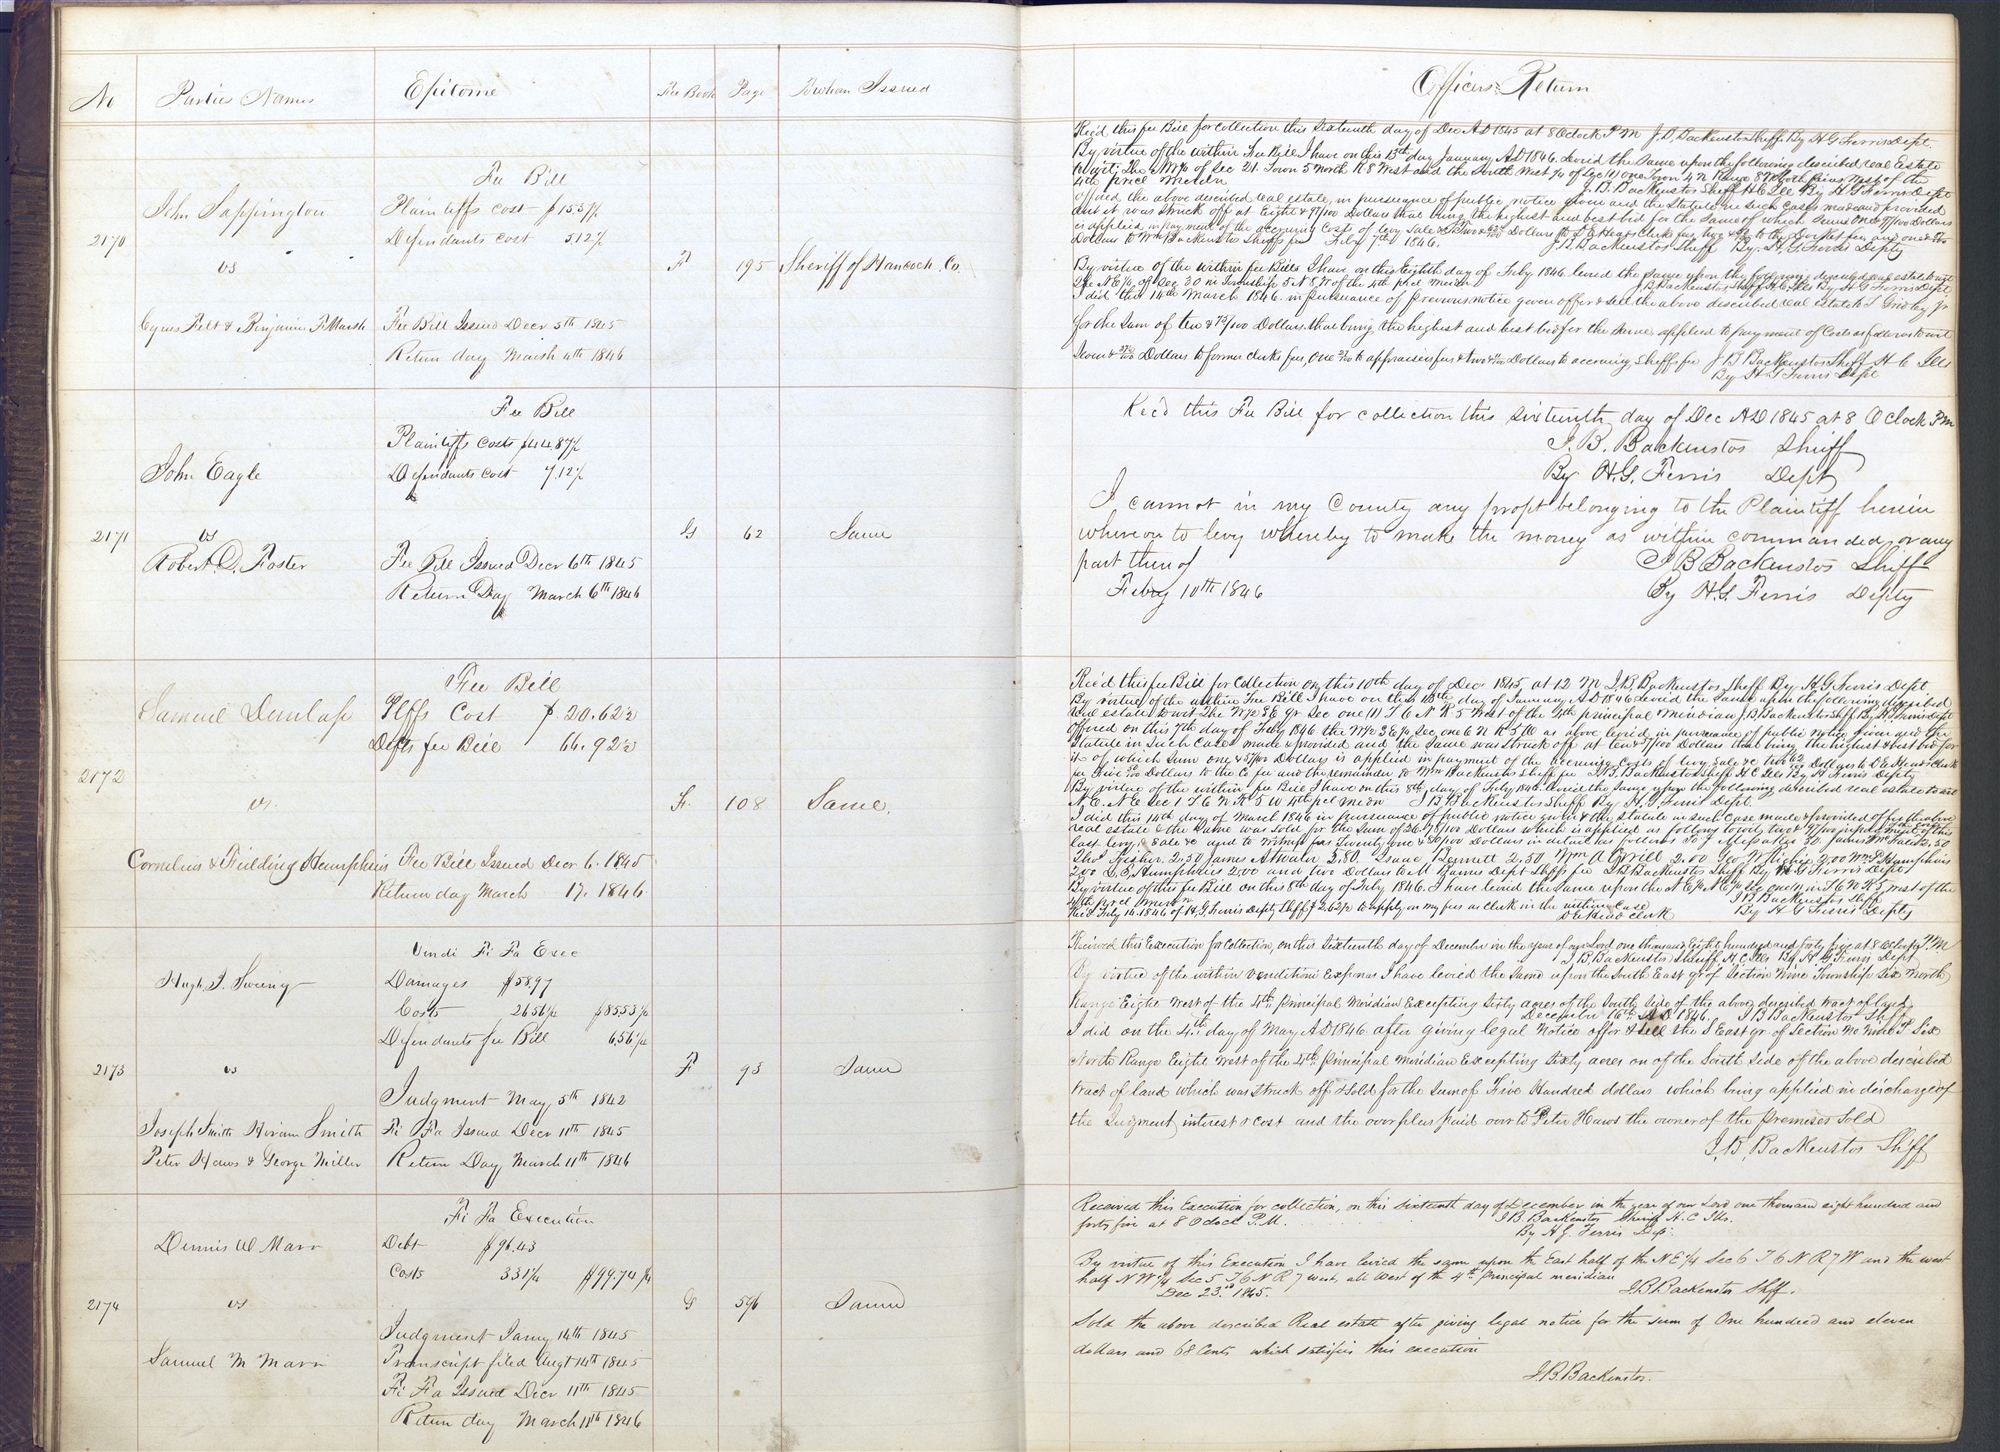 No
Parties Names
Epitome
Fee Book
Page
To whom Issued
Officers Return
2170
John Sappington
vs
Cyrus Felt & Benjamin F Marsh
Fee Bill
Plaintiffs cost $15.37½
Defendants cost 5.12½
Fee Bill Issued Decr 5th 1845
Return day March 4th 1846
F
195
Sheriff of Hancock Co.
Rec'd this fee Bill for collection this sixteenth day of Dec AD 1845 at 8 Oclock P M J. B. Backenstos Sheff. By H G Ferris Dept.
By virtue of the within Fee Bill I have on this 13th day January AD 1846. levied the same upon the following described real Estate
to wit: The NW¼ of Sec 21. Town 5 North R. 8 West and the South West ¼ of Sec (1) one Town 4 N Range 8 West of the
4th pricl Merdn J. B. Backenstos Sheff H C Ills By H G Ferris Dept
offered the above described real estate, in pursuance of public notice given and the Statute in such cases made and provided
and it was struck off at Eight & 97/100 Dollars that being the highest and best bid for the same of which sum One & 97/100 Dollars
is applied in payment of the accruing costs of levy Sale &c
Dollars to Wm Backenstos Sheffs fee Feby 7th 1846. J B Backenstos Sheff By H. G. Ferris Depty
By virtue of the within fee Bills I have on this Eighth day of Feby 1846. levied the same upon the following described real estate to wit
The N E ¼ of Sec 30 in Township 5 N 8 W of the 4th pricl Merdn J B Backenstos Sheff H C Ills By H G Ferris Dept
I did this 14th March 1846. in pursuance of previous notice given offer & sell the above described real estate to T Gridley Jr
for the sum of ten & 75/100 Dollars that being the highest and best bid for the same, applied to payment of Costs as follows to wit
Seven & 37½/100 Dollars to former clerks fees, One to appraisers fees & two Dollars to accruing Sheffs fee J B Backenstos Sheff H C Ills
By H G Ferris Dept
2171
John Eagle
vs
Robert D. Foster
Fee Bill
Plaintiffs Costs $44.87½
Defendants cost 7.12½
Fee Bill Issued Decr 6th 1845
Return Day March 6th 1846
G
62
Same
Rec'd this Fee Bill for collection this sixteenth day of Dec AD 1845 at 8 O Clock P M
J. B. Backenstos Sheriff
By H. G. Ferris Dept
I cannot in my County any propt belonging to the Plaintiff herein
whereon to levy whereby to make the money as within commanded or any
part thereof J B Backenstos Sheriff
Feby 10th 1846 By H. G. Ferris Depty
2172
Samuel Dunlap
vs.
Cornelius & Fielding Humphries
Fee Bill
Plffs Cost $20.62½
Defts fee Bill 66.92½
Fee Bill Issued Decr 6. 1845
Return day March 17. 1846.
F.
108
Same.
Rec'd this fee Bill for collection on this 10th day of Dec 1845, at 12 M J. B. Backenstos Sheff. By H G Ferris Dept.
By virtue of the within Fee Bill I have on this 13th day of January AD 1846 levied the same upon the following described
real estate to wit The W½ S E qr Sec one (1) T 6 N R. 5 West of the 4th principal Meridian J B Backenstos Sheff By H G Ferris Dept
Offered on this 7th day of Feby 1846 the W½ S E ¼ Sec one 6 N R 5 W as above levied in pursuance of public notice given and the
Statute in such case made & provided and the same was struck off at ten & 57/100 Dollars that being the highest & best bid for
it of which sum one & 57/100 Dollars is applied in payment of the accruing costs of levy, sale &c
Dollars to the Co fee and the remainder to Wm Backenstos Sheff fee J. B. Backenstos Sheff H C Ills By H Ferris Depty
By virtue of the within fee Bill I have on this 8th day of Feby 1846. levied the same upon the following described real estate to wit
N. E. N E Sec 1 T 6 N R 5 W 4th pcl Merdn J B Backenstos Sheff By H. G Ferris Dept.
I did this 14th day of March 1846 in pursuance of public notice given & the statute in such case made & provided offer the above
real estate & the same was sold for the sum of 26.78/100 Dollars which is applied as follows to wit,
last levy, sale &c and to witness fees Twenty one & 80/100 Dollars in detail as follows
Thos Fisher. 2.50 James Atwater 3.80. Isaac Bennett 2.50
2.00 and two Dollars Dept Sheffs fee J B Backenstos Sheff By H G Ferris Dept
By virtue of this fee Bill on this 8th day of Feby 1846. I have levied the same upon the N E ¼ N E ¼ Sec one in T 6 N R 5 west of the
4th prcl Merdn J B Backenstos Sheff
Rec'd Feby 14. 1846 of H. G. Ferris Depty Sheff $2.62½ to apply on my fees as clerk in the within case By H G Ferris Depty
D E Head Clerk
2173
Hugh T. Swiney
vs
Joseph Smith Hiram Smith
Peter Haws & George Miller
Vendi Fi Fa Exec
Damages $58.97
Costs 26.56½ $85.53½
Defendants fee Bill 6.56½
Judgment May 5th 1842
Fi Fa Issued Decr 11th 1845
Return Day March 11th 1846
F
93
Same
Received this Execution for Collection, on this Sixteenth day of December in the year of our Lord one thousand Eight hundred and forty five at 8 Oclock P.M
J B Backenstos Sheriff H C Ills By H G Ferris Dept
By virtue of the within venditioni Exponas I have levied the same upon the South East qr of Section Nine Township Six North
Range Eight West of the 4th Principal Meridian Excepting Sixty acres of the South Side of the above described tract of land
December 16th AD 1846. J B Backenstos Sheff
I did on the 4th day of May, AD 1846. after giving legal Notice offer & sell the S East qr. of Section No Nine T Six
North Range Eight West of the 4th Principal Meridian Excepting Sixty acres on of the South Side of the above described
tract of land which was struck off & sold for the sum of Five Hundred dollars which being applied in discharge of
the Judgment, interest & cost and the overplus paid over to Peter Haws the owner of the premises Sold
J. B. Backenstos Shff
2174
Dennis W Marr
vs
Samuel M Marr
Fi Fa Execution
Debt $96.43
Costs 3.31¼ $99.74¼
Judgment Jany 14th 1845
Transcript filed Augt 14th 1845
Fi Fa Issued Decr 11th 1845
Return day March 11th 1846
G
596
Same
Received this Execution for collection, on this sixteenth day of December in the year of our Lord one thousand eight hundred and
forty five at 8 Oclock P.M. J. B. Backenstos Sheriff H. C Ills.
By H G. Ferris Dep.
By virtue of this Execution I have levied the same upon the East half of the N E ¼ Sec 6 T 6 N R 7 W and the west
half N W ¼ Sec 5 T 6 N R 7 west, all West of the 4th principal meridian
Dec 23rd 1845. J B Backenstos Shff.
Sold the above described Real estate after giving legal notice for the sum of One hundred and eleven
dollars and 68 Cents which satisfies this execution
J. B. Backenstos.